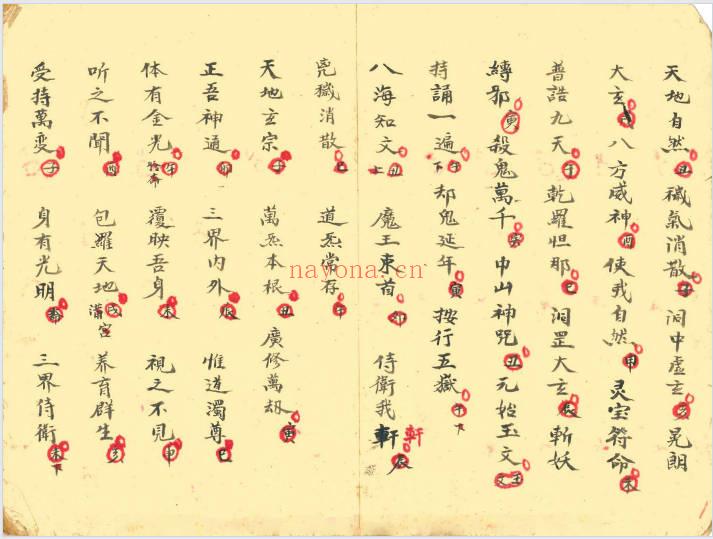 天地自然丑 穢氣消散子 洞中虛玄亥 晃朗
大玄 八方威神酉 使我自然申 灵宝符命未
普誥九天午 乾羅怛那巳 洞罡大玄辰 斬妖
縛邪寅 殺鬼萬千 中山神咒丑 元始玉文
持誦一遍午下 却鬼延年寅 按行五嶽午下
八海知文丑上 魔王束首卯 侍衛我軒軒辰
兇穢消散巳 道炁常存午
天地玄宗子 萬炁本根丑 廣修萬劫寅
正吾神通卯 三界内外辰 惟道濁尊巳
体有金光午 覆映吾身未 視之不見申
听之不聞酉 包羅天地戌 养育群生亥
受持萬变子 身有光明 三界侍衛未下
nayona.cn